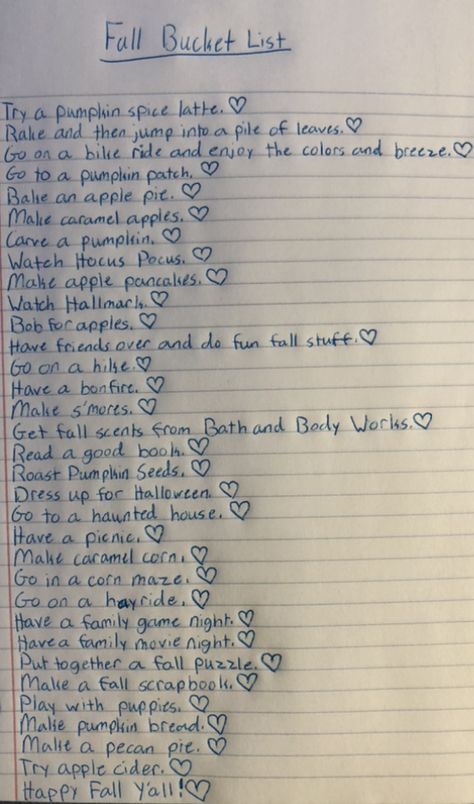 Fall Bucket List
Try a pumpkin spice latte.♡
Rake and then jump into a pile of leaves.♡
Go on a bike ride and enjoy the colors and breeze.♡
Go to a pumpkin patch.♡
Bake an apple pie.♡
Make caramel apples.♡
Carve a pumpkin.♡
Watch Hocus Pocus.♡
Make apple pancakes.♡
Watch Hallmark.♡
Bob for apples.♡
Have friends over and do fun fall stuff.♡
Go on a hike.♡
Have a bonfire.♡
Make s'mores.♡
Get fall scents from Bath and Body Works.♡
Read a good book.♡
Roast Pumpkin Seeds.♡
Dress up for Halloween.♡
Go to a haunted house.♡
Have a picnic.♡
Make caramel corn.♡
Go in a corn maze.♡
Go on a hayride.♡
Have a family game night.♡
Have a family movie night.♡
Put together a fall puzzle.♡
Make a fall scrapbook.♡
Play with puppies.♡
Make pumpkin bread.♡
Make a pecan pie.♡
Try apple cider.♡
Happy Fall Y'all!♡